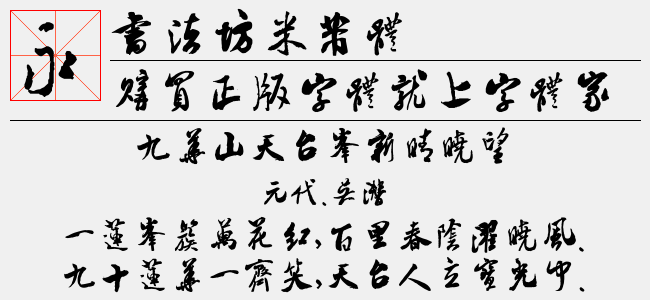 永
書法坊米芾體
購買正版字體就上字體家
九華山天台峯新晴曉望
元代.吳灊
一蓮峯簇萬花紅,百里春陰濯曉風.
九十蓮華一齊笑,天台人立寶光中.